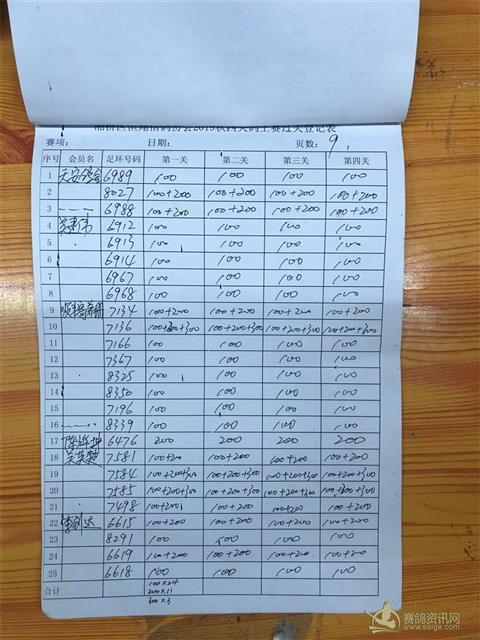 赛项： 日期： 页数：9
序号 会员名 足环号码 第一关 第二关 第三关 第四关
1 天安鸽舍 6989 100 100 100 100
2 8027 100+200 100+200 100+200 100+200
3 6988 100+200 100+200 100+200 100+200
4 6912 100 100 100 100
5 6913 100 100 100 100
6 6914 100 100 100 100
7 6967 100 100 100 100
8 6968 100 100 100 100
9 7134 100+200 100+200 100+200 100+200
10 7136 100+200+300 100+200+300 100+200+300 100+200+300
11 7166 100 100 100 100
12 7367 100 100 100 100
13 8325 100 100 100 100
14 8350 100 100 100 100
15 7196 100 100 100 100
16 8339 100 100 100 100
17 6476 200 200 200 200
18 7581 100+200 100+200 100+200 100+200
19 7584 100+200+300 100+200+300 100+200+300 100+200+300
20 7585 100+200+300 100+200+300 100+200+300 100+200+300
21 7498 100+200 100+200 100+200 100+200
22 6615 100+200 100+200 100+200 100+200
23 8291 100 100 100 100
24 6619 100+200 100+200 100+200 100+200
25 6618 100 100 100 100
合计 100×24
200×11
300×3
赛鸽资讯网
www.saige.com